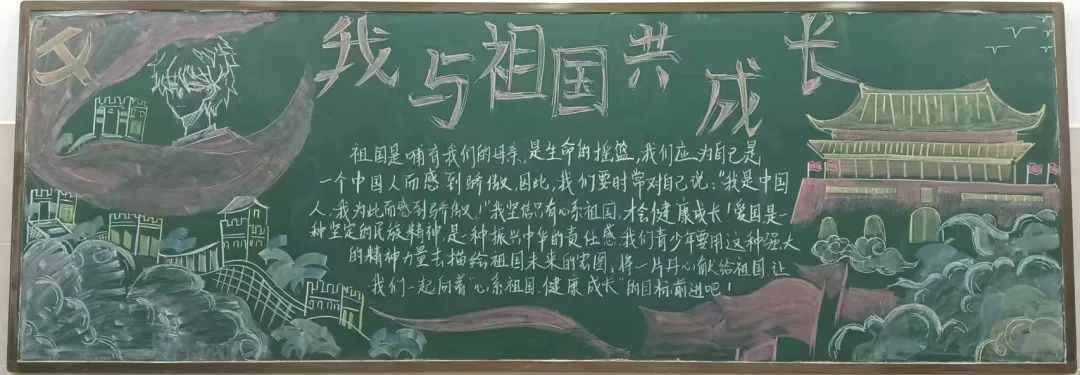 我与祖国共成长
祖国是哺育我们的母亲,是生命的摇篮,我们应为自己是
一个中国人而感到骄傲,因此,我们要时常对自己说:“我是中国
人,我为此而感到骄傲!”我坚信只有心系祖国,才会健康成长!爱国是一
种坚定的民族精神,是一种振兴中华的责任感,我们青少年要用这种强大
的精神力量去描绘祖国未来的宏图,将一片丹心献给祖国让
我们一起向着“心系祖国,健康成长”的目标前进吧!